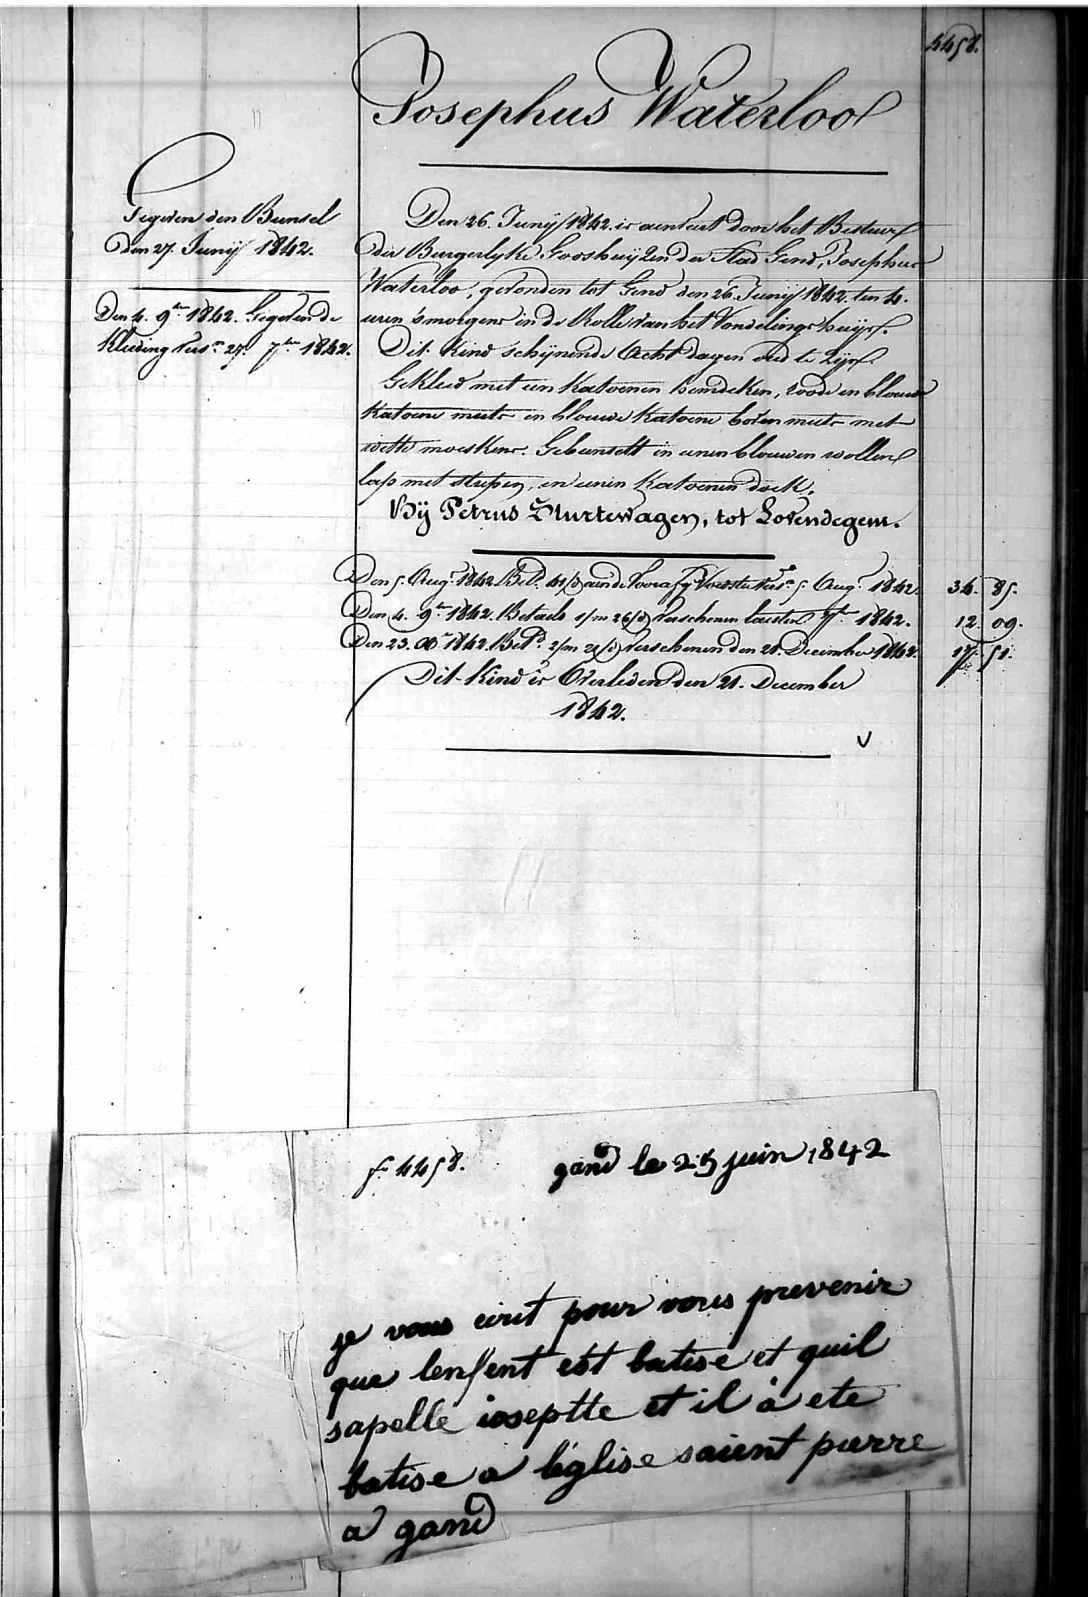 4458.
Josephus Waterloo
Gegeven den Bunsel
Den 27. Junij 1842.
Den 4. 9ber 1842. Gegeven de
Kleeding vers.n 27. 7ber 1842.
Den 26. Junij 1842. is aanveert door het Bestuur
der Burgerlyke Godshuyzen der Stad Gend, Josephus
Waterloo, gevonden tot Gend den 26. Junij 1842. ten 4.
uren 's morgens in de Rolle van het Vondelingshuys.
Dit Kind schynende Acht dagen oud te zyn.
Gekleed met een Katoenen hemdeken, roode en blouwe
Katoene muts en blouwe Katoene boven muts met
witte moeskens. Gebunselt in eenen blouwen wollen
lap met strepen, en eenen Katoenen doek.
By Petrus Sturtewagen, tot Lovendegem.
Den 5. Aug. 1842. Bet.d vers.n 5. Aug. 1842. 34. 85.
Den 4. 9ber 1842. Betaelt 1/m 26/d verschenen 1842. 12. 09.
Den 23. Xber 1842. Bet.d 2/m 21/d verschenen den 21. December 1842. 17. 51.
Dit Kind is Overleden den 21. December
1842.
f.o 4458.
gand le 25 juin 1842
je vous ecrit pour vous prevenir
que lenfent est batise et quil
sapelle ioseptte et il à ete
batise a léglise saient pierre
a gand